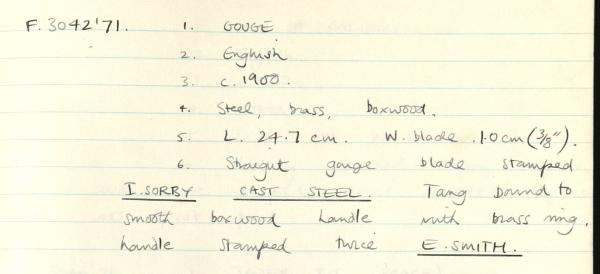 F.3042'71. 1. GOUGE
2. English
3. c.1900.
4. Steel, brass, boxwood.
5. L. 24.7 cm. W. blade .1.0 cm (3/8").
6. Straight gouge blade stamped
I. SORBY CAST STEEL. Tang bound to
smooth boxwood handle with brass ring.
handle stamped twice E. SMITH.